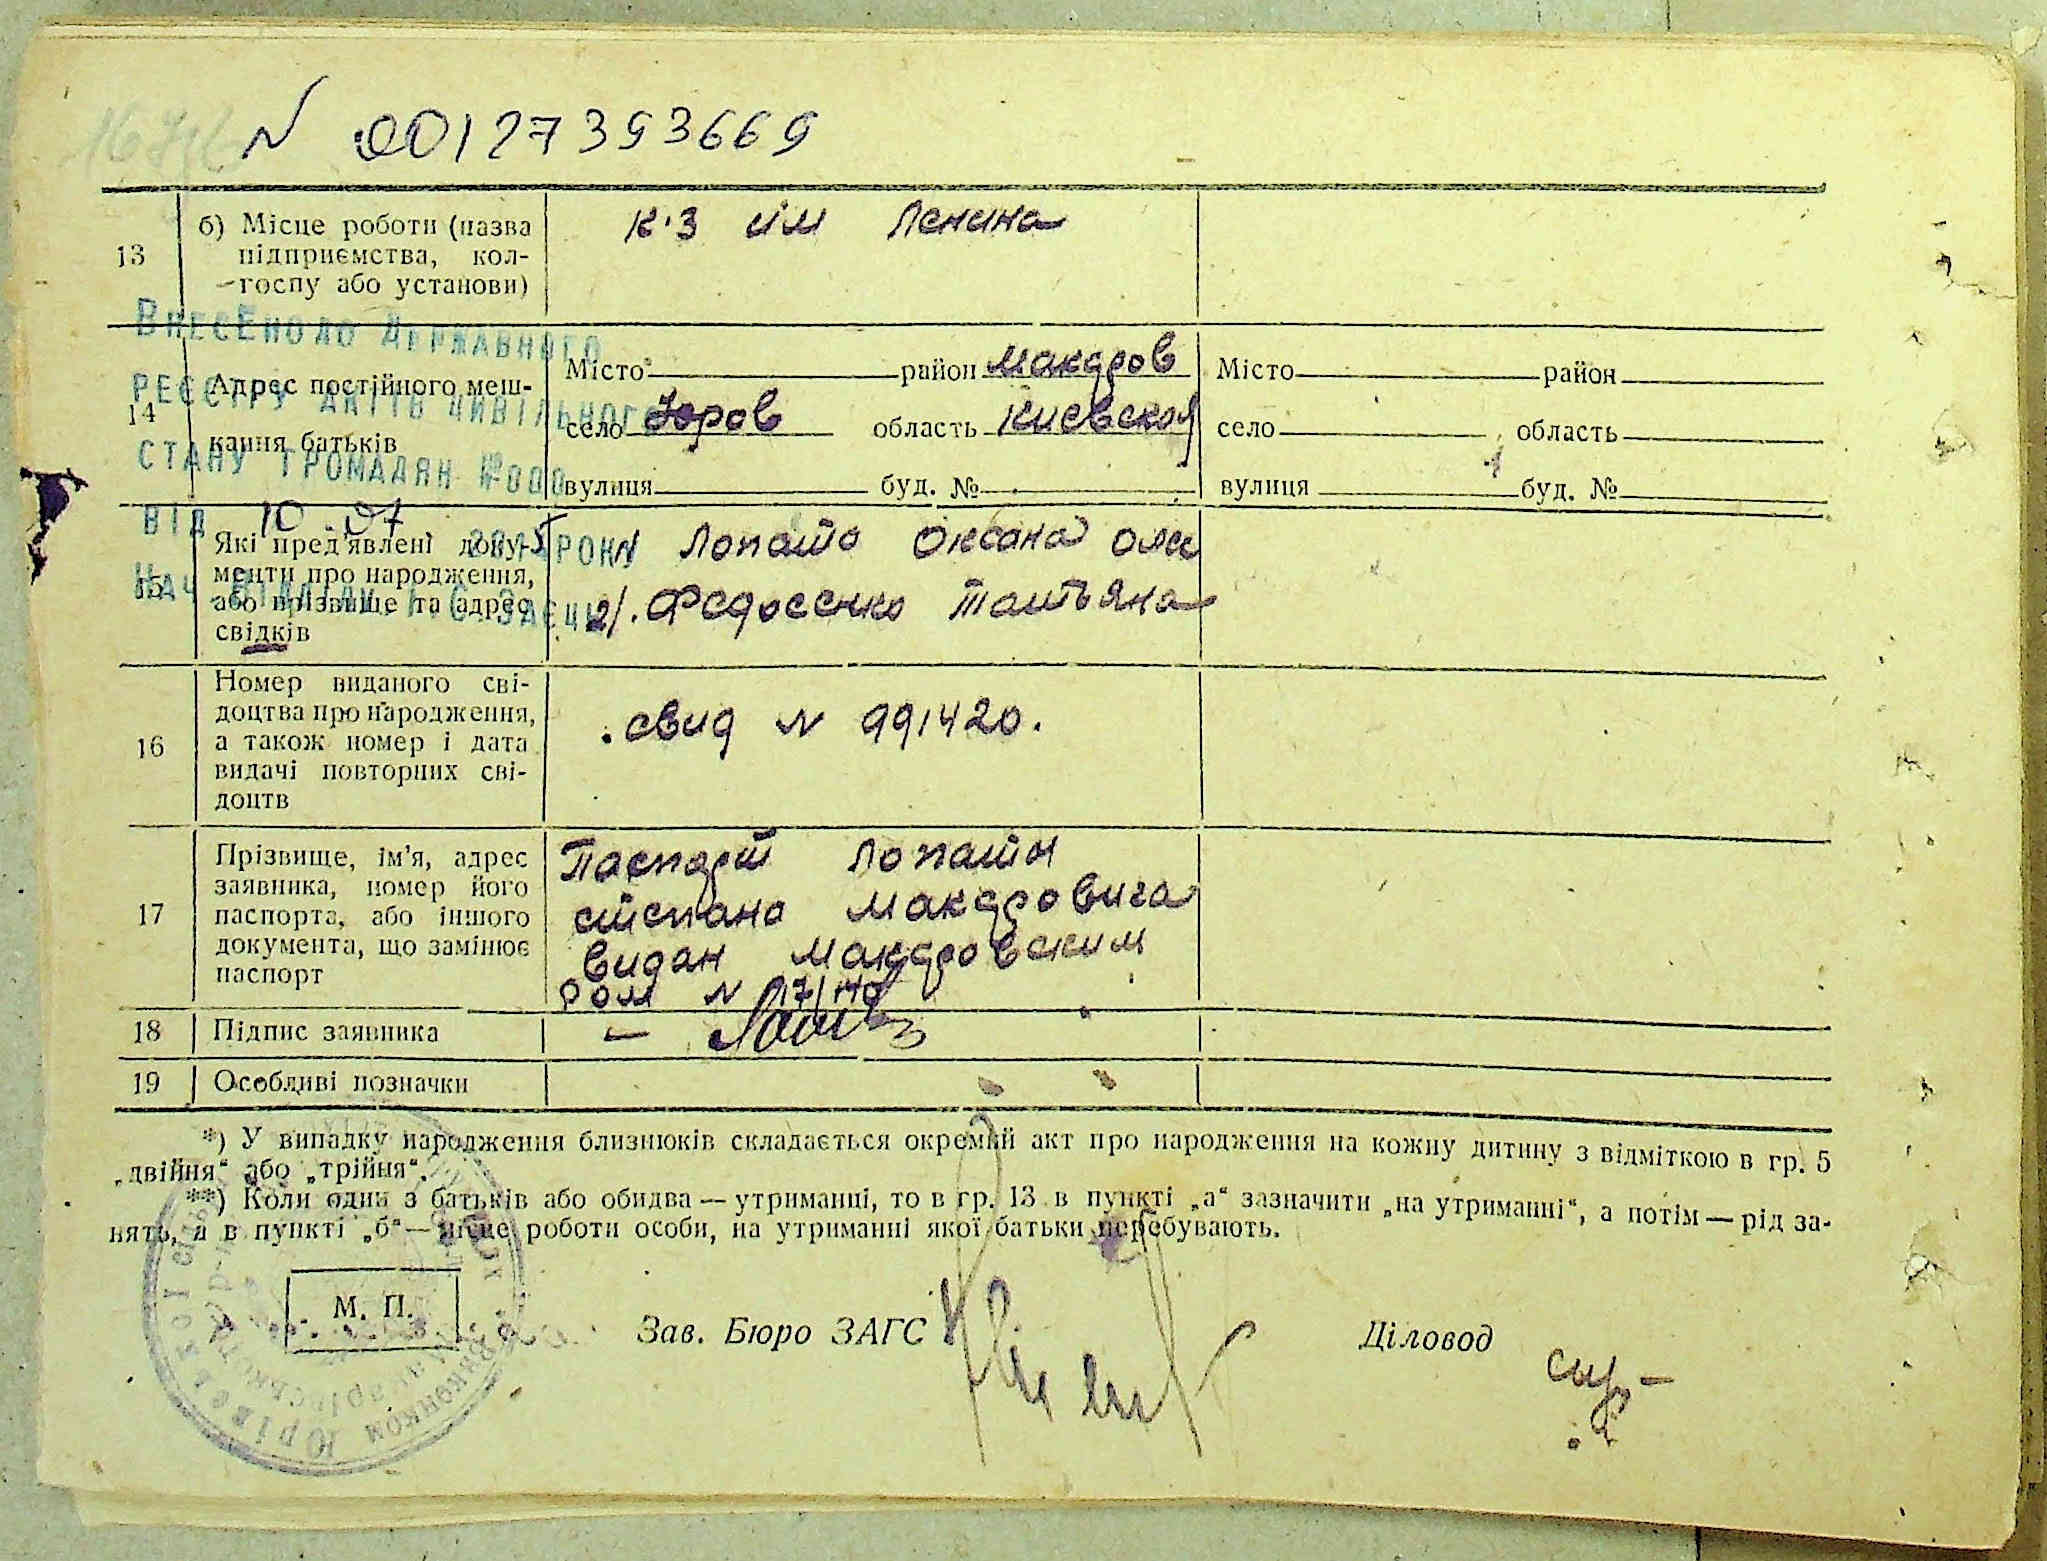 N 00127393669
13
б) Місце роботи (назва
підприємства, кол-
госпу або установи)
к·з им Ленина
ВНЕСЕНО ДО ДЕРЖАВНОГО
РЕЄСТРУ АКТІВ ЦИВІЛЬНОГО
СТАНУ ГРОМАДЯН №000
ВІД 10.07 РОКУ
14
Адрес постійного меш-
кання батьків
Місто район Макаров
село Юров область Киевская
вулиця буд. №
Місто район
село область
вулиця буд. №
15
Які пред'явлені доку-
менти про народження,
або прізвище та адрес
свідків
Лопата Оксана
2/. Федосенко Татьяна
16
Номер виданого сві-
доцтва про народження,
а також номер і дата
видачі повторних сві-
доцтв
свид N 991420.
17
Прізвище, ім'я, адрес
заявника, номер його
паспорта, або іншого
документа, що замінює
паспорт
Паспорт Лопаты
Степана Макаровича
видан Макаровским
ром N
18 Підпис заявника
19 Особливі позначки
*) У випадку народження близнюків складається окремий акт про народження на кожну дитину з відміткою в гр. 5
„двійня“ або „трійня“.
**) Коли один з батьків або обидва — утриманці, то в гр. 13 в пункті „а“ зазначити „на утриманні“, а потім — рід за-
нять, а в пункті „б“ — місце роботи особи, на утриманні якої батьки перебувають.
М. П.
Зав. Бюро ЗАГС
Діловод